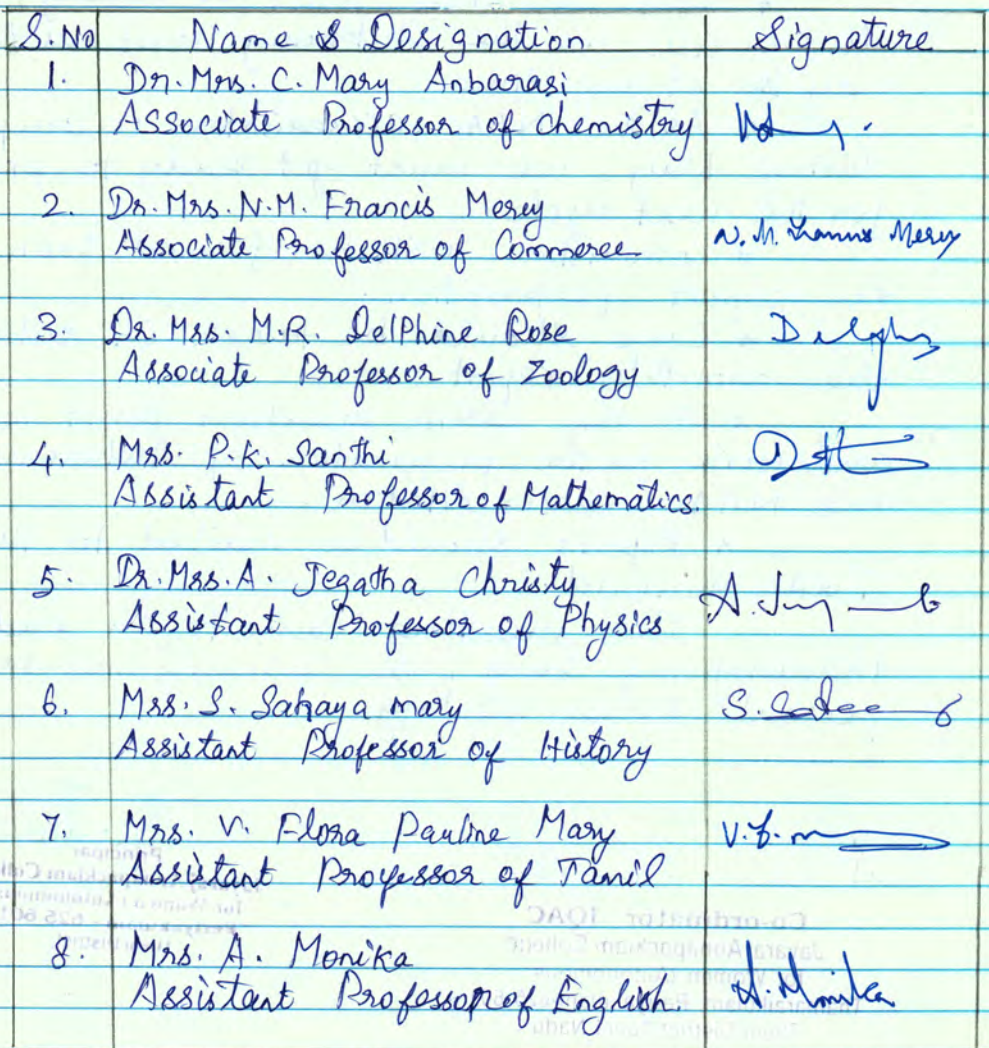 S.No Name & Designation Signature
1. Dr. Mrs. C. Mary Anbarasi
Associate Professor of chemistry
2. Dr. Mrs. N.M. Francis Mercy
Associate Professor of Commerce N. M. Francis Mercy
3. Dr. Mrs. M.R. Delphine Rose
Associate Professor of Zoology
4. Mrs. P.K. Santhi
Assistant Professor of Mathematics.
5. Dr. Mrs. A. Jegatha Christy
Assistant Professor of Physics
6. Mrs. S. Sahaya mary
Assistant Professor of History
7. Mrs. V. Flora Pauline Mary
Assistant Professor of Tamil
8. Mrs. A. Monika
Assistant Professor of English. A. Monika